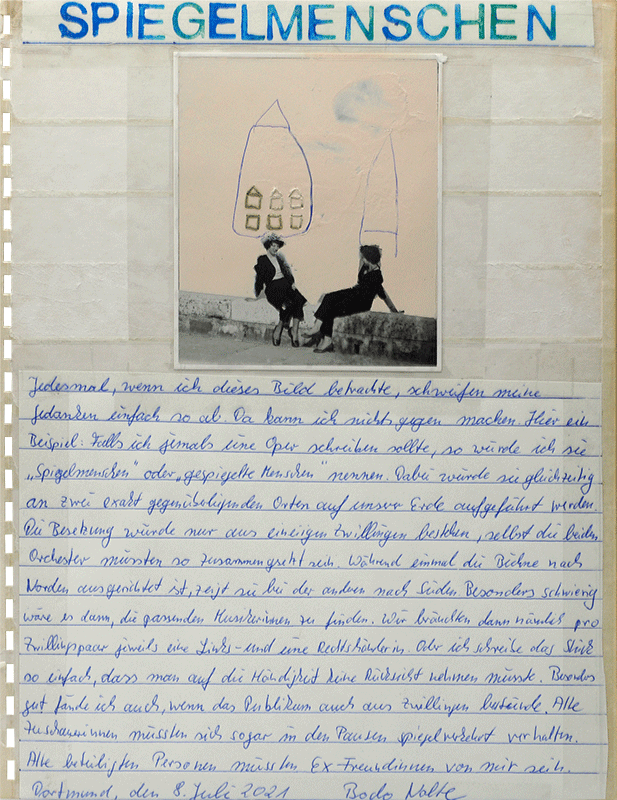 SPIEGELMENSCHEN
Jedesmal, wenn ich dieses Bild betrachte, schweifen meine
Gedanken einfach so ab. Da kann ich nichts gegen machen. Hier ein
Beispiel: Falls ich jemals eine Oper schreiben sollte, so würde ich sie
„Spiegelmenschen" oder „gespiegelte Menschen" nennen. Dabei würde sie gleichzeitig
an zwei exakt gegenüberliegenden Orten auf unserer Erde aufgeführt werden.
Die Besetzung würde nur aus eineiigen Zwillingen bestehen, selbst die beiden
Orchester müssten so zusammengesetzt sein. Während einmal die Bühne nach
Norden ausgerichtet ist, zeigt sie bei der anderen nach Süden. Besonders schwierig
wäre es dann, die passenden Musikerinnen zu finden. Wir bräuchten dann nämlich pro
Zwillingspaar jeweils eine Links- und eine Rechtshänderin. Oder ich schreibe das Stück
so einfach, dass man auf die Händigkeit keine Rücksicht nehmen müsste. Besonders
gut fände ich auch, wenn das Publikum auch aus Zwillingen bestünde. Alle
Zuschauerinnen müssten sich sogar in den Pausen spiegelverkehrt verhalten.
Alle beteiligten Personen müssten Ex-Freundinnen von mir sein.
Dortmund, den 8. Juli 2021 Bodo Nolte